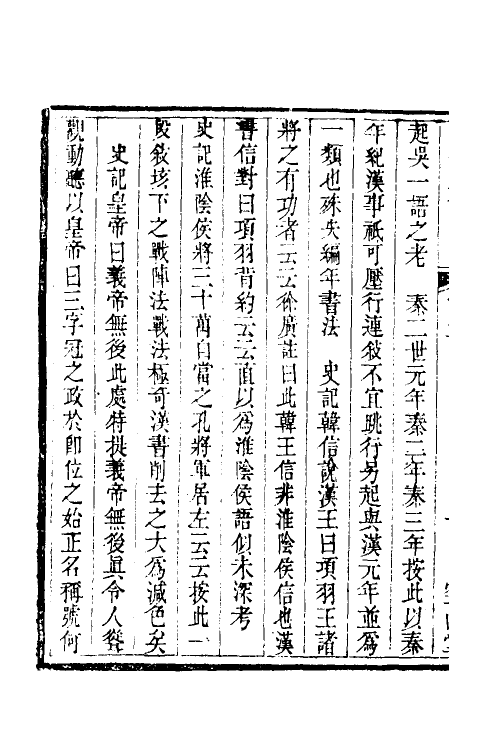 起吳一語之老　秦二世元年秦二年秦三年按此以秦
年紀漢事祇可壓行連敍不宜跳行另起與漢元年並爲
一類也殊失編年書法　史記韓信說漢王曰項羽王諸
將之有功者云云徐廣註曰此韓王信非淮陰侯信也漢
書信對曰項羽背約云云直以爲淮陰侯語似未深考
史記淮陰侯將三十萬自當之孔將軍居左云云按此一
段敍垓下之戰陣法戰法極奇漢書削去之大爲減色矣
史記皇帝曰義帝無後此處特提義帝無後眞令人聳
觀動聽以皇帝曰三字冠之政於卽位之始正名稱號何